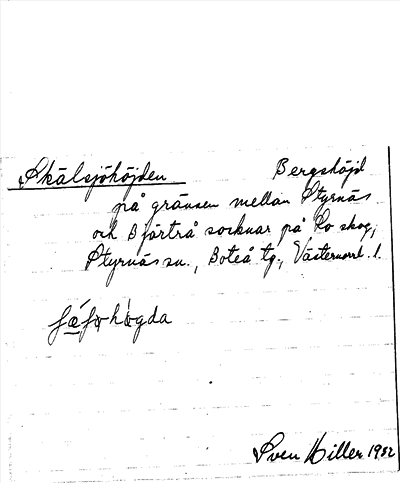 Skälsjöhöjden Bergshöjd
på gränsen mellan Styrnäs
och Bjärtrå socknar på Ro skog,
Styrnäs sn., Boteå tg., Västernorrl. l.
Sven Hiller 1932